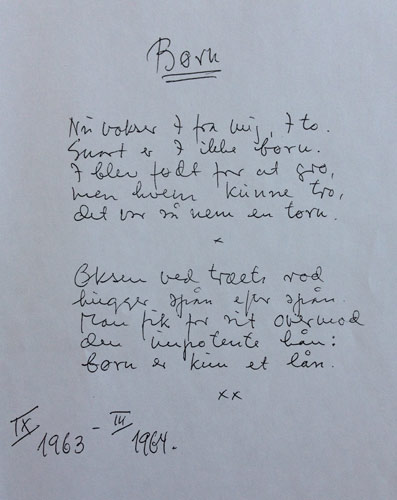 Børn
Nu vokser I fra mig, I to.
Snart er I ikke børn.
I blev født for at gro,
men hvem kunne tro,
det var så nem en torn.
*
Øksen ved træets rod
hugger spån efter spån.
Man fik for sit overmod
den impotente hån:
børn er kun et lån.
xx
IX 1963 - III 1964.